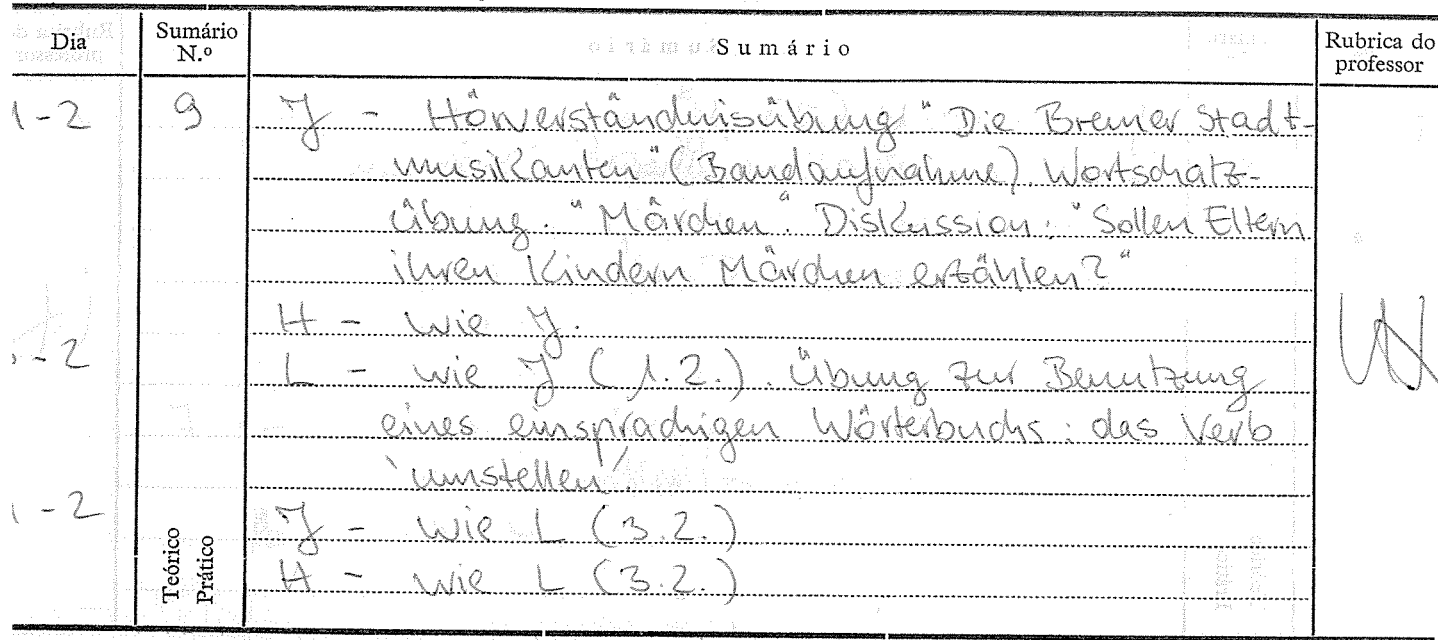 Dia Sumário N.º Sumário Rubrica do professor
1-2 9 J - Hörverständnisübung "Die Bremer Stadt-
musikanten" (Bandaufnahme). Wortschatz-
übung. "Märchen". Diskussion: "Sollen Eltern
ihren Kindern Märchen erzählen?"
H - wie J.
-2 L - wie J (1.2.). Übung zur Benutzung
eines einsprachigen Wörterbuchs: das Verb
'umstellen'.
-2 J - wie L (3.2.)
H - wie L (3.2.)
Teórico Prático